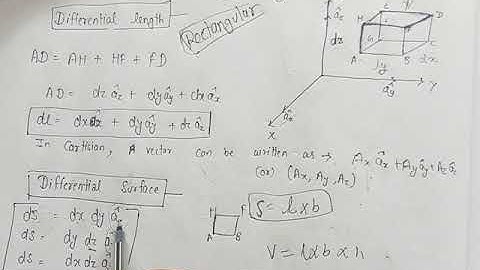 Differential length
Rectangular
AD = AH + HE + ED
AD = dz âz + dyây + dxâx
dl = dxâx + dyây + dz âz
In Cartision, A vector can be written as → Ax âx + Ayây + Az âz
(or) (Ax, Ay, Az)
Differential Surface
ds = dx dy âz
ds = dy dz â
ds = dx dz â
S = l x b
V = l x b x h
âz
dz
H
E
D
G
A
B
C
dy
dx
ây
Y
âx
X
H
A
B